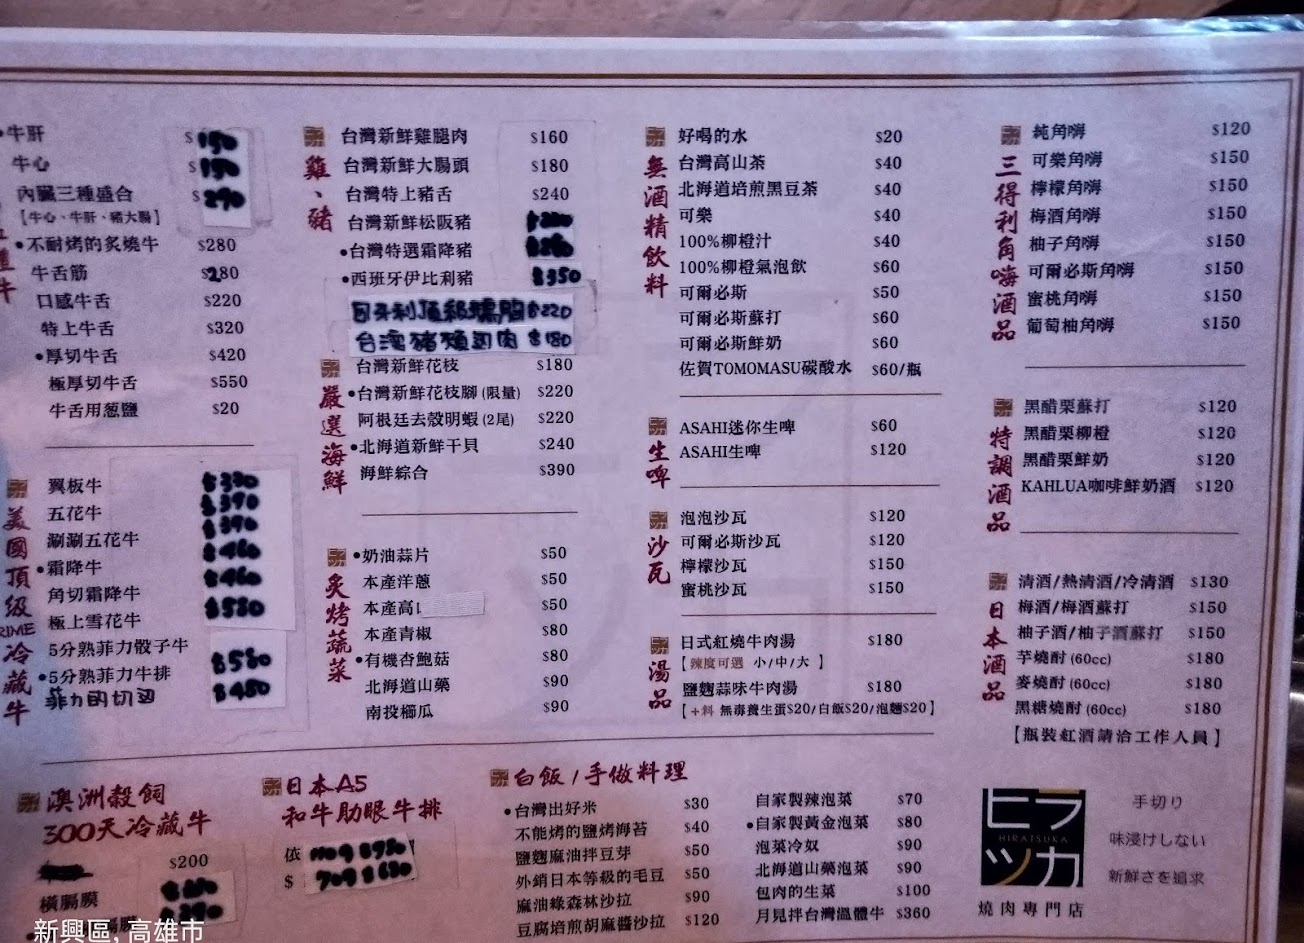 牛肝 $150
牛心 $150
內臟三種盛合 $290
【牛心、牛肝、豬大腸】
•不耐烤的炙燒牛 $280
牛舌筋 $280
口感牛舌 $220
特上牛舌 $320
•厚切牛舌 $420
極厚切牛舌 $550
牛舌用葱鹽 $20
美國頂級PRIME冷藏牛
翼板牛 $330
五花牛 $390
涮涮五花牛 $390
•霜降牛 $460
角切霜降牛 $460
極上雪花牛 $530
5分熟菲力骰子牛
•5分熟菲力牛排 $580
菲力的切邊 $480
雞、豬
台灣新鮮雞腿肉 $160
台灣新鮮大腸頭 $180
台灣特上豬舌 $240
台灣新鮮松阪豬
•台灣特選霜降豬 $280
•西班牙伊比利豬 $350
$220
台灣豬頰肉 $180
嚴選海鮮
台灣新鮮花枝 $180
•台灣新鮮花枝腳(限量) $220
阿根廷去殼明蝦(2尾) $220
•北海道新鮮干貝 $240
海鮮綜合 $390
炙烤蔬菜
•奶油蒜片 $50
本產洋蔥 $50
本產高 $50
本產青椒 $80
•有機杏鮑菇 $80
北海道山藥 $90
南投櫛瓜 $90
無酒精飲料
好喝的水 $20
台灣高山茶 $40
北海道焙煎黑豆茶 $40
可樂 $40
100%柳橙汁 $40
100%柳橙氣泡飲 $60
可爾必斯 $50
可爾必斯蘇打 $60
可爾必斯鮮奶 $60
佐賀TOMOMASU碳酸水 $60/瓶
生啤
ASAHI迷你生啤 $60
ASAHI生啤 $120
沙瓦
泡泡沙瓦 $120
可爾必斯沙瓦 $120
檸檬沙瓦 $150
蜜桃沙瓦 $150
湯品
日式紅燒牛肉湯 $180
【辣度可選 小/中/大】
鹽麴蒜味牛肉湯 $180
【+料 無毒養生蛋$20/白飯$20/泡麵$20】
三得利角嗨酒品
純角嗨 $120
可樂角嗨 $150
檸檬角嗨 $150
梅酒角嗨 $150
柚子角嗨 $150
可爾必斯角嗨 $150
蜜桃角嗨 $150
葡萄柚角嗨 $150
特調酒品
黑醋栗蘇打 $120
黑醋栗柳橙 $120
黑醋栗鮮奶 $120
KAHLUA咖啡鮮奶酒 $120
日本酒品
清酒/熱清酒/冷清酒 $130
梅酒/梅酒蘇打 $150
柚子酒/柚子酒蘇打 $150
芋燒酎(60cc) $180
麥燒酎(60cc) $180
黑糖燒酎(60cc) $180
【瓶裝紅酒請洽工作人員】
澳洲穀飼
300天冷藏牛
$200
橫膈膜
日本A5
和牛肋眼牛排
依
$
白飯/手做料理
•台灣出好米 $30
不能烤的鹽烤海苔 $40
鹽麴麻油拌豆芽 $50
外銷日本等級的毛豆 $50
麻油綠森林沙拉 $90
豆腐焙煎胡麻醬沙拉 $120
自家製辣泡菜 $70
•自家製黃金泡菜 $80
泡菜冷奴 $90
北海道山藥泡菜 $90
包肉的生菜 $100
月見拌台灣溫體牛 $360
ヒラ
HIRATSUKA
ツカ
燒肉專門店
手切り
味浸けしない
新鮮さを追求
新興區, 高雄市